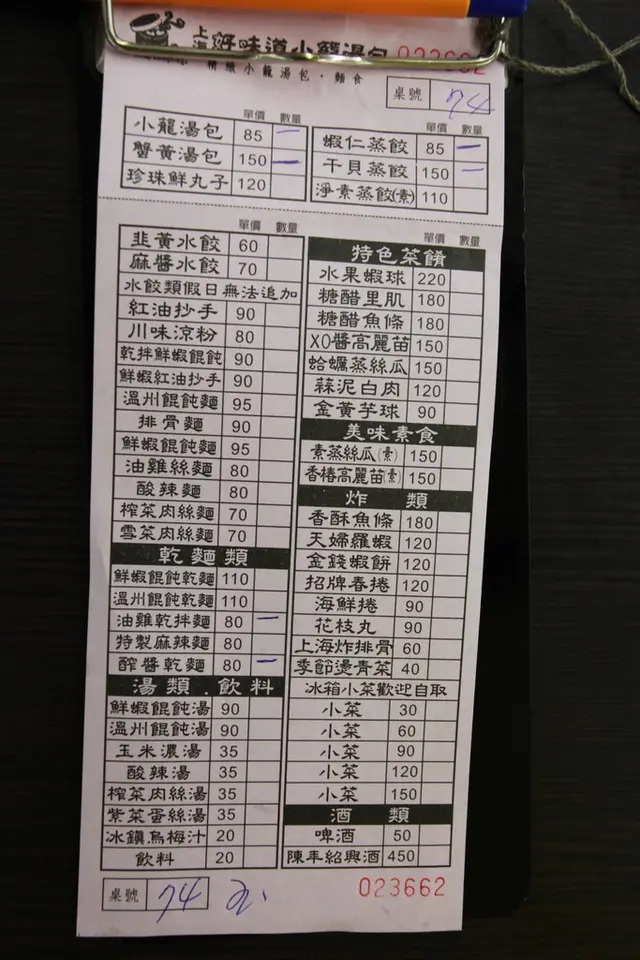 上海 好味道小籠湯包 023662
精緻小籠湯包・麵食
桌號 74
單價 數量
小籠湯包 85 一
蟹黃湯包 150 一
珍珠鮮丸子 120
單價 數量
蝦仁蒸餃 85 一
干貝蒸餃 150 一
淨素蒸餃(素) 110
單價 數量
韭黃水餃 60
麻醬水餃 70
水餃類假日無法追加
紅油抄手 90
川味涼粉 80
乾拌鮮蝦餛飩 90
鮮蝦紅油抄手 90
溫州餛飩麵 95
排骨麵 90
鮮蝦餛飩麵 95
油雞絲麵 80
酸辣麵 80
榨菜肉絲麵 70
雪菜肉絲麵 70
乾麵類
鮮蝦餛飩乾麵 110
溫州餛飩乾麵 110
油雞乾拌麵 80 一
特製麻辣麵 80
醡醬乾麵 80 一
湯類.飲料
鮮蝦餛飩湯 90
溫州餛飩湯 90
玉米濃湯 35
酸辣湯 35
榨菜肉絲湯 35
紫菜蛋絲湯 35
冰鎮烏梅汁 20
飲料 20
單價 數量
特色菜餚
水果蝦球 220
糖醋里肌 180
糖醋魚條 180
XO醬高麗苗 150
蛤蠣蒸絲瓜 150
蒜泥白肉 120
金黃芋球 90
美味素食
素蒸絲瓜(素) 150
香椿高麗苗(素) 150
炸類
香酥魚條 180
天婦羅蝦 120
金錢蝦餅 120
招牌春捲 120
海鮮捲 90
花枝丸 90
上海炸排骨 60
季節燙青菜 40
冰箱小菜歡迎自取
小菜 30
小菜 60
小菜 90
小菜 120
小菜 150
酒類
啤酒 50
陳年紹興酒 450
桌號 74
023662